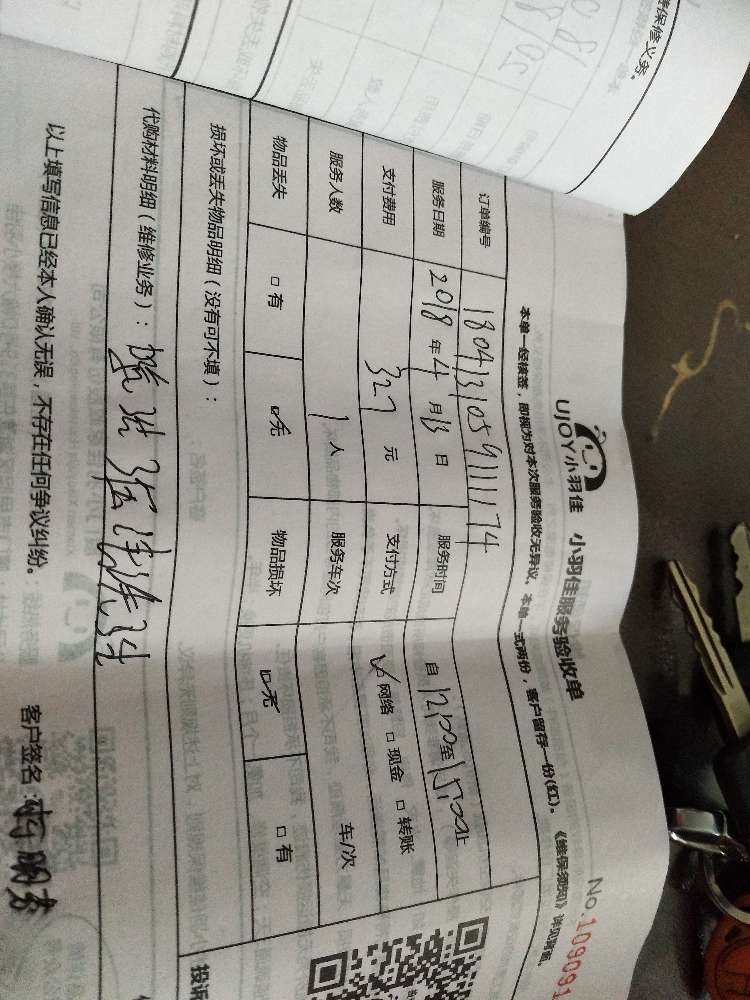 维保修义务。
UJOY小羽佳 小羽佳服务验收单
No.109091
本单一经核签，即视为对本次服务验收无异议。本单一式两份，客户留存一份(红)。
订单编号 180413105911174
服务日期 2018年4月13日 服务时间 自12:00至15:00止
支付费用 327元 支付方式 网络 现金 转账
服务人数 1人 服务车次 车/次
物品丢失 有 无 物品损坏 无 有
损坏或丢失物品明细（没有可不填）：
代购材料明细（维修业务）：
以上填写信息已经本人确认无误，不存在任何争议纠纷。
客户签名：
投诉